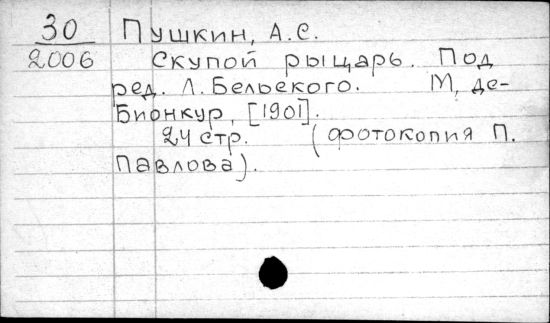 30 Пушкин, А.С.
2006 Скупой рыцарь. Под
ред. Л. Бельского. М, де-
Бионкур, [1901].
24 стр. (фотокопия П.
Павлова).